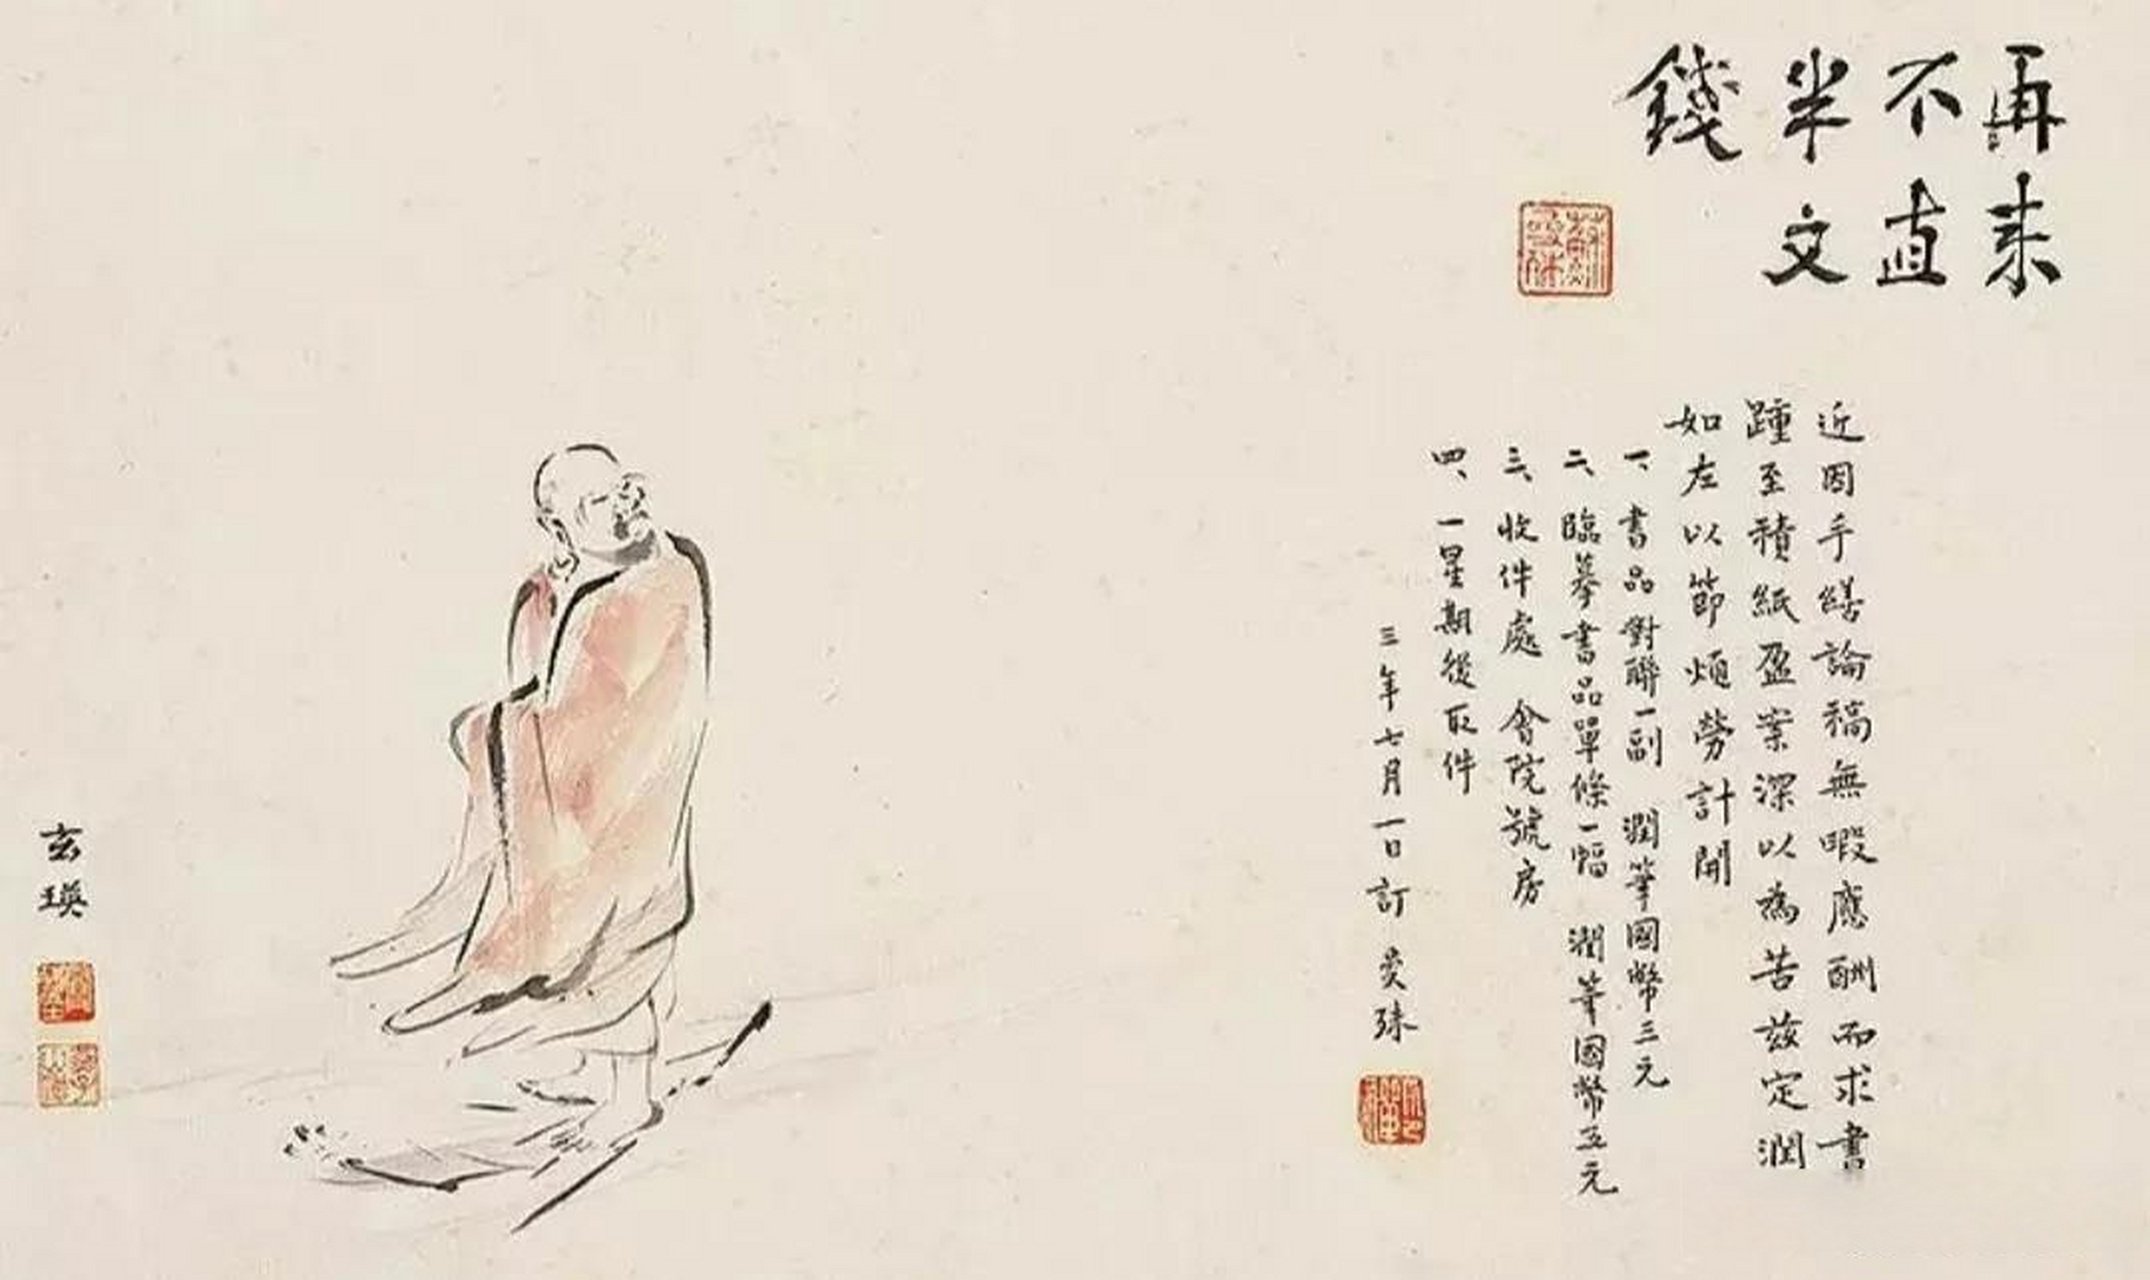 再来
不直
半文
錢
近因手繕論稿無暇應酬而求書
踵至積紙盈案深以為苦茲定潤
如左以節煩勞計開
一、書品對聯一副 潤筆國幣三元
二、臨摹書品單條一幅 潤筆國幣五元
三、收件處 會院號房
四、一星期後取件
三年七月一日訂 奕殊
玄瑛